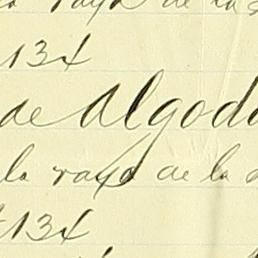 la raya de la
134
de Algodo
la raya de la
134